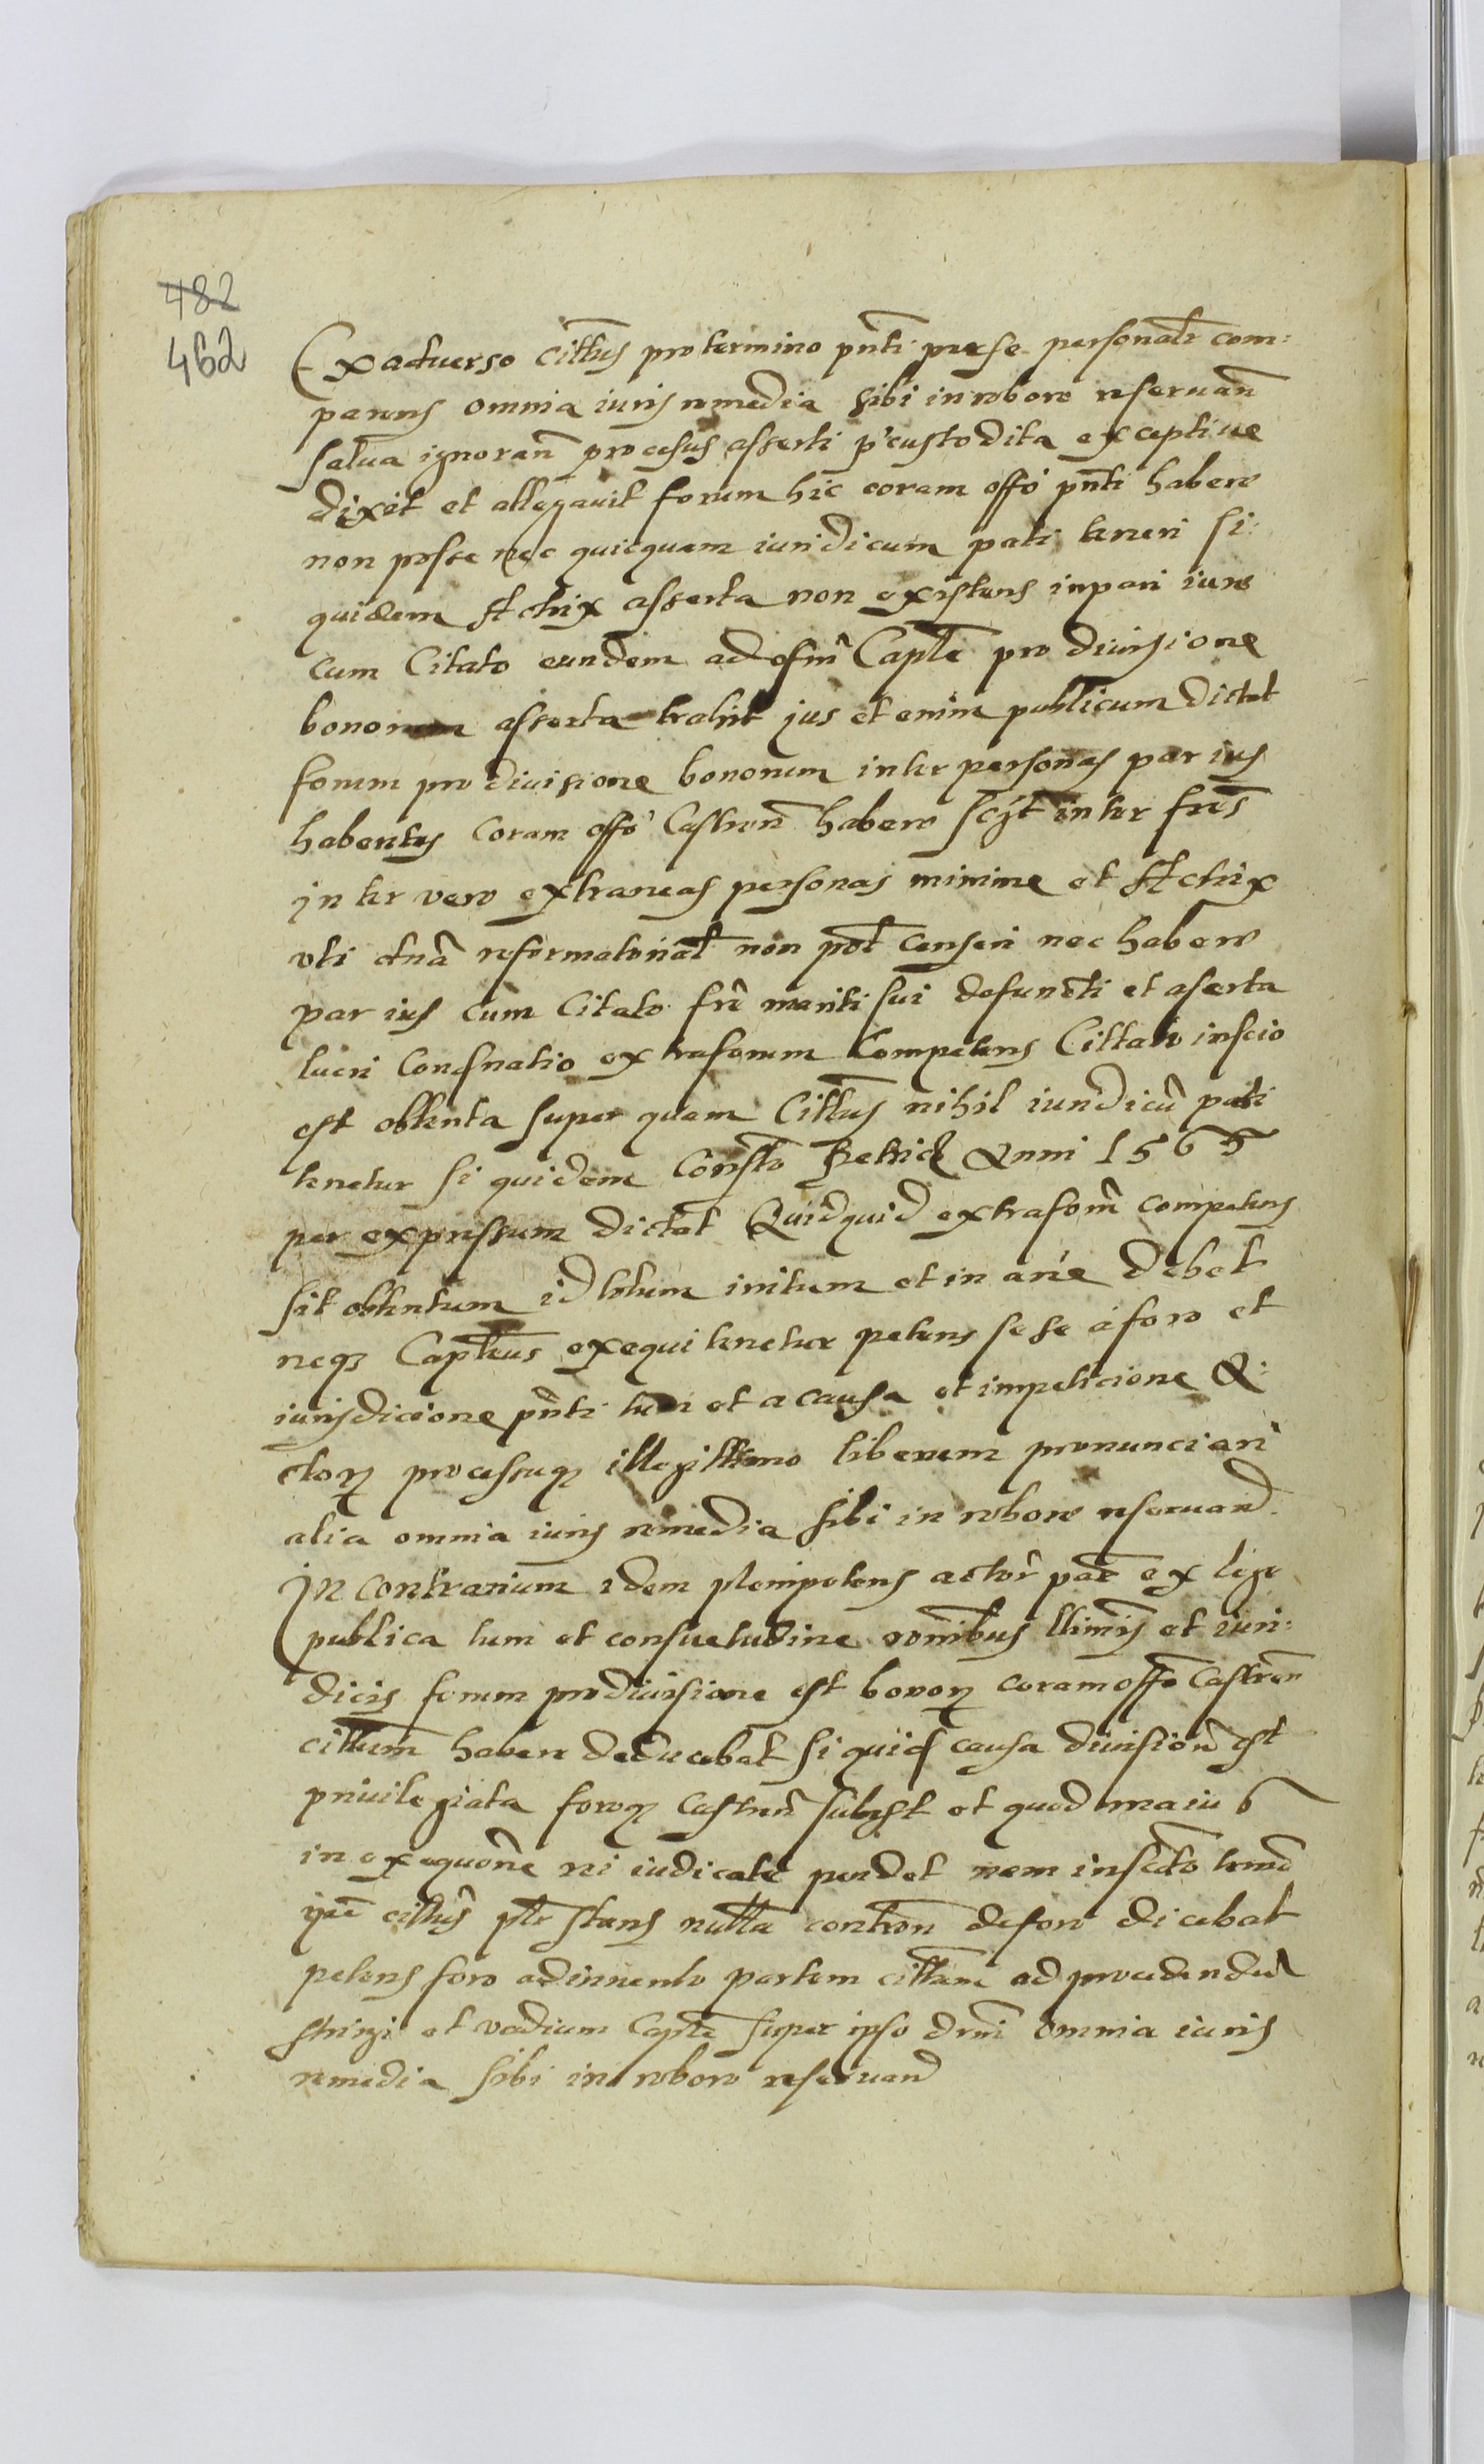 482
462
Ex aduerso cittus pro termino pnti per se personalr com:
parens omnia iuris remedia sibi in robore reseruan
salua ignoran processus asserti p'custodita exceptiue
dixit et allegauit forum hic coram offo pnti habere
non posse nec quicquam iuridicum pati teneri si:
quidem Actrix asserta non existens in pari iure
cum Citato eundem ad Capte pro diuisione
bonorum asserta trahit jus et enim publicum dictat
forum pro diuisione bonorum inter personas par ius
habentes coram offo Castren habere scijt inter fres
inter vero extraneas personas minime et Actrix
vti reformatorial non pot censeri nec habere
par ius cum Citato fre mariti sui defuncti et aserta
lucri extra forum Competens Cittato inscio
est obtenta super quam Cittus nihil iuridicu pati
tenetur si quidem Consto Petrico Anni 1565
per expressum dictat Quidquid extra forum competens
sit obtentum id totum iritum et inane debet
neqz Capteus exequi tenetur petens se se a foro et
iurisdicione pnti tum et a causa et impeticione A:
ctorz processuqz illegittimo liberum pronunciari
alia omnia iuris remedia sibi in robore reseruand.
In contrarium idem plenipotens actor ex lege
publica tum et consuetudine omnibus et iuri:
dicis forum pro diuisione est bonorz coram offo Castren
cittum habere deducebat si quid causa diuision est
priuilegiata foroqz castren subest et quod maius
in exequone rei iudicate pendet nem
cittus stans nulla contron de foro dicebat
petens foro adinuento partem cittam ad procedendu
stringi et vadium Capte super ipso omnia iuris
remedia sibi in robore reseruand